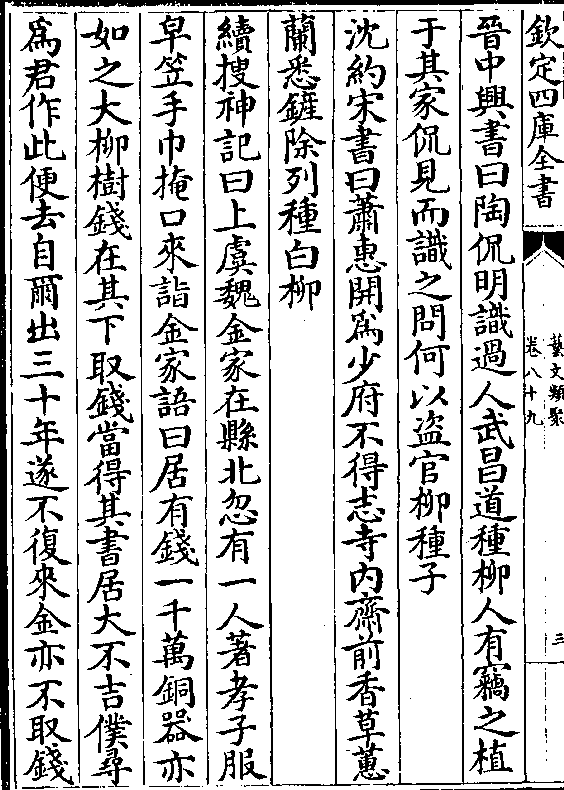 欽定四庫全書
藝文類聚
卷八十九
三
晉中興書曰陶侃明識過人武昌道種柳人有竊之植
于其家侃見而識之問何以盜官柳種子
沈約宋書曰蕭惠開爲少府不得志寺内齋前香草蕙
蘭悉鏟除列種白柳
續搜神記曰上虞魏金家在縣北忽有一人著孝子服
皁笠手巾掩口來詣金家語曰居有錢一千萬銅器亦
如之大柳樹錢在其下取錢當得其書居大不吉僕尋
爲君作此便去自爾出三十年遂不復來金亦不取錢